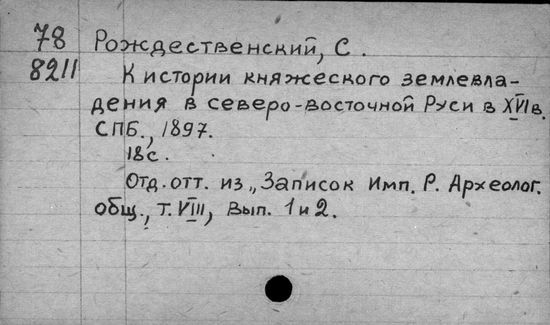 78 Рождественский, С.
8211 К истории княжеского землевла-
дения в северо-восточной Руси в XVI в.
СПБ., 1897.
18 с.
Отд. отт. из „Записок Имп. Р. Археолог.
общ., т. VIII, вып. 1 и 2.